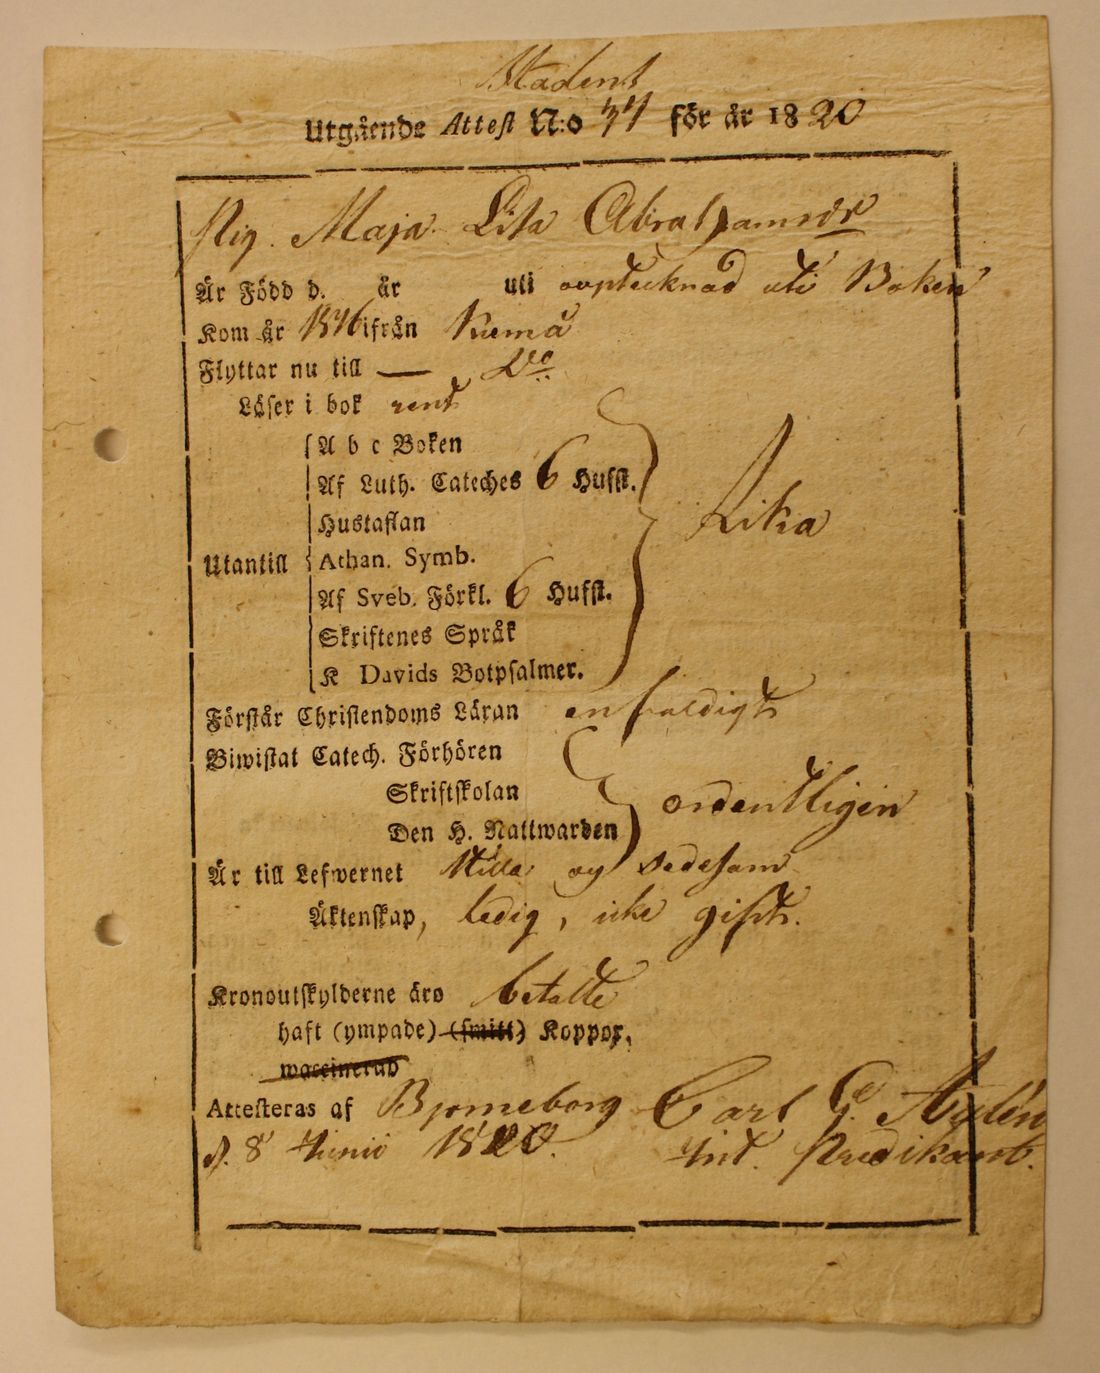 Stadent
Utgående Attest N:o 37 för år 1820
Pig. Maja Lisa Abrahamsdr
Är Född d. år uti oupteknad uti Boken
Kom år 1816 ifrån Kiemå
Flyttar nu till — Do
Läser i bok rent
A b c Boken
Af Luth. Cateches 6 Hufst.
Hustaflan
Utantill Athan. Symb.
Af Sveb. Förkl. 6 Hufst.
Skriftenes Språk
K Davids Botpsalmer.
Förstår Christendoms Läran enfaldigt
Biwistat Catech. Förhören
Skriftskolan
Den H. Nattwarden ordentligen
Är till Lefwernet Stilla og sedesam
Äktenskap, ledig, icke gift.
Kronoutskylderne äro betalte
haft (ympade) (smitt) Koppor,
waccinerad
Attesteras af Bjorneborg Carl G.
d. 8 Junii 1820. Predikant.